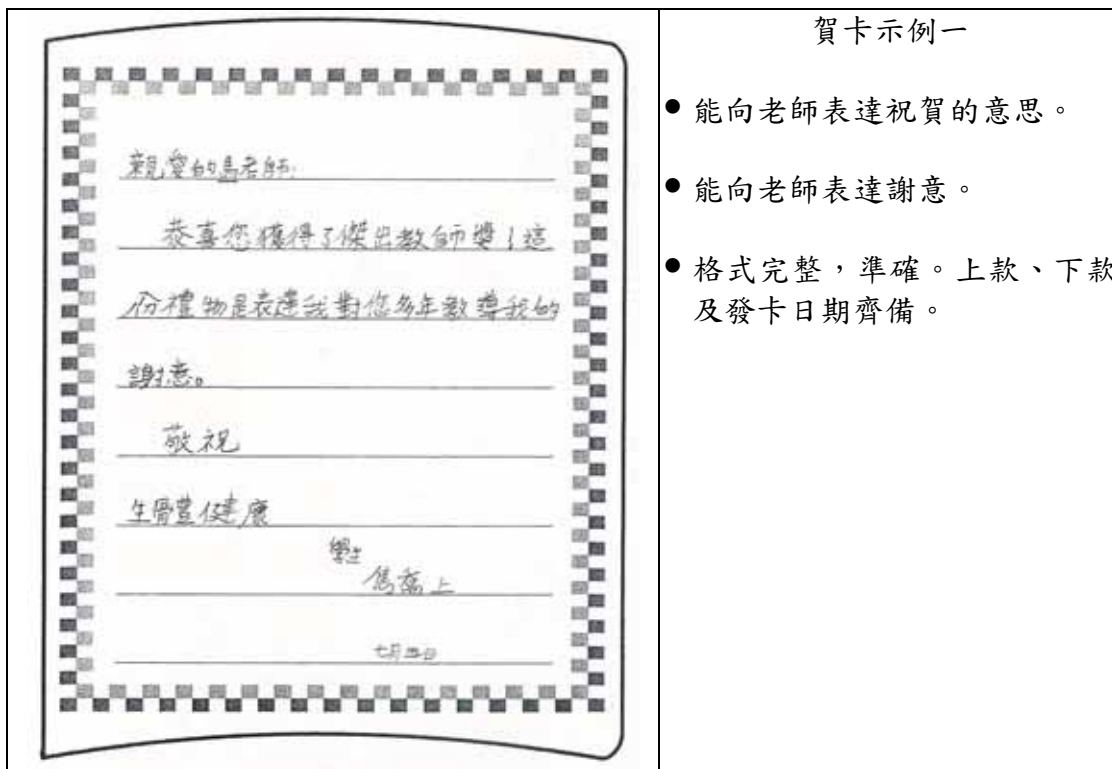 親愛的馬老師:
恭喜您獲得了傑出教師獎!這
份禮物是表達我對您多年教導我的
謝意。
敬祝
生體健康
學生
上
七月四日
賀卡示例一
● 能向老師表達祝賀的意思。
● 能向老師表達謝意。
● 格式完整,準確。上款、下款
及發卡日期齊備。